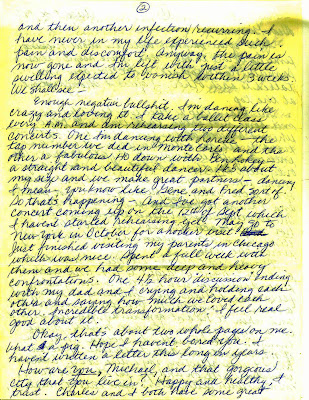 ②
and then another infection recurring. I
have never in my life experienced such
pain and discomfort. Anyway, the pain is
now gone and I'm left with just a little
swelling expected to vanish within 3 weeks
We shall see —
Enough negative bullshit. I'm dancing like
crazy and loving it. I take a ballet class
every A.M. and am rehearsing two different
concerts. One I'm dancing with
tap number we did in Monte Carlo and has
other a fabulous Ho down with
a straight and beautiful dancer. He's about
my size and we make great partners — dancing
I mean — you know like Gene and Fred sort of
So that's happening — and I've got another
concert coming up on the 12th of Sept which
I haven't started rehearsing yet. May go to
New York in October for another
Just finished visiting my parents in Chicago
which was nice. Spent a full week with
them and we had some deep and heavy
confrontations. One 4½ hour discussion ending
with my dad and I crying and holding each
other and saying how much we loved each
other. Incredible transformation. I feel real
good about it.
Okay, that's about two whole pages on me.
What a pig. Hope I haven't bored you. I
haven't written a letter this long in years.
How are you, Michael, and that gorgeous
city that you live in? Happy and healthy, I
trust. Charles and I both have some great